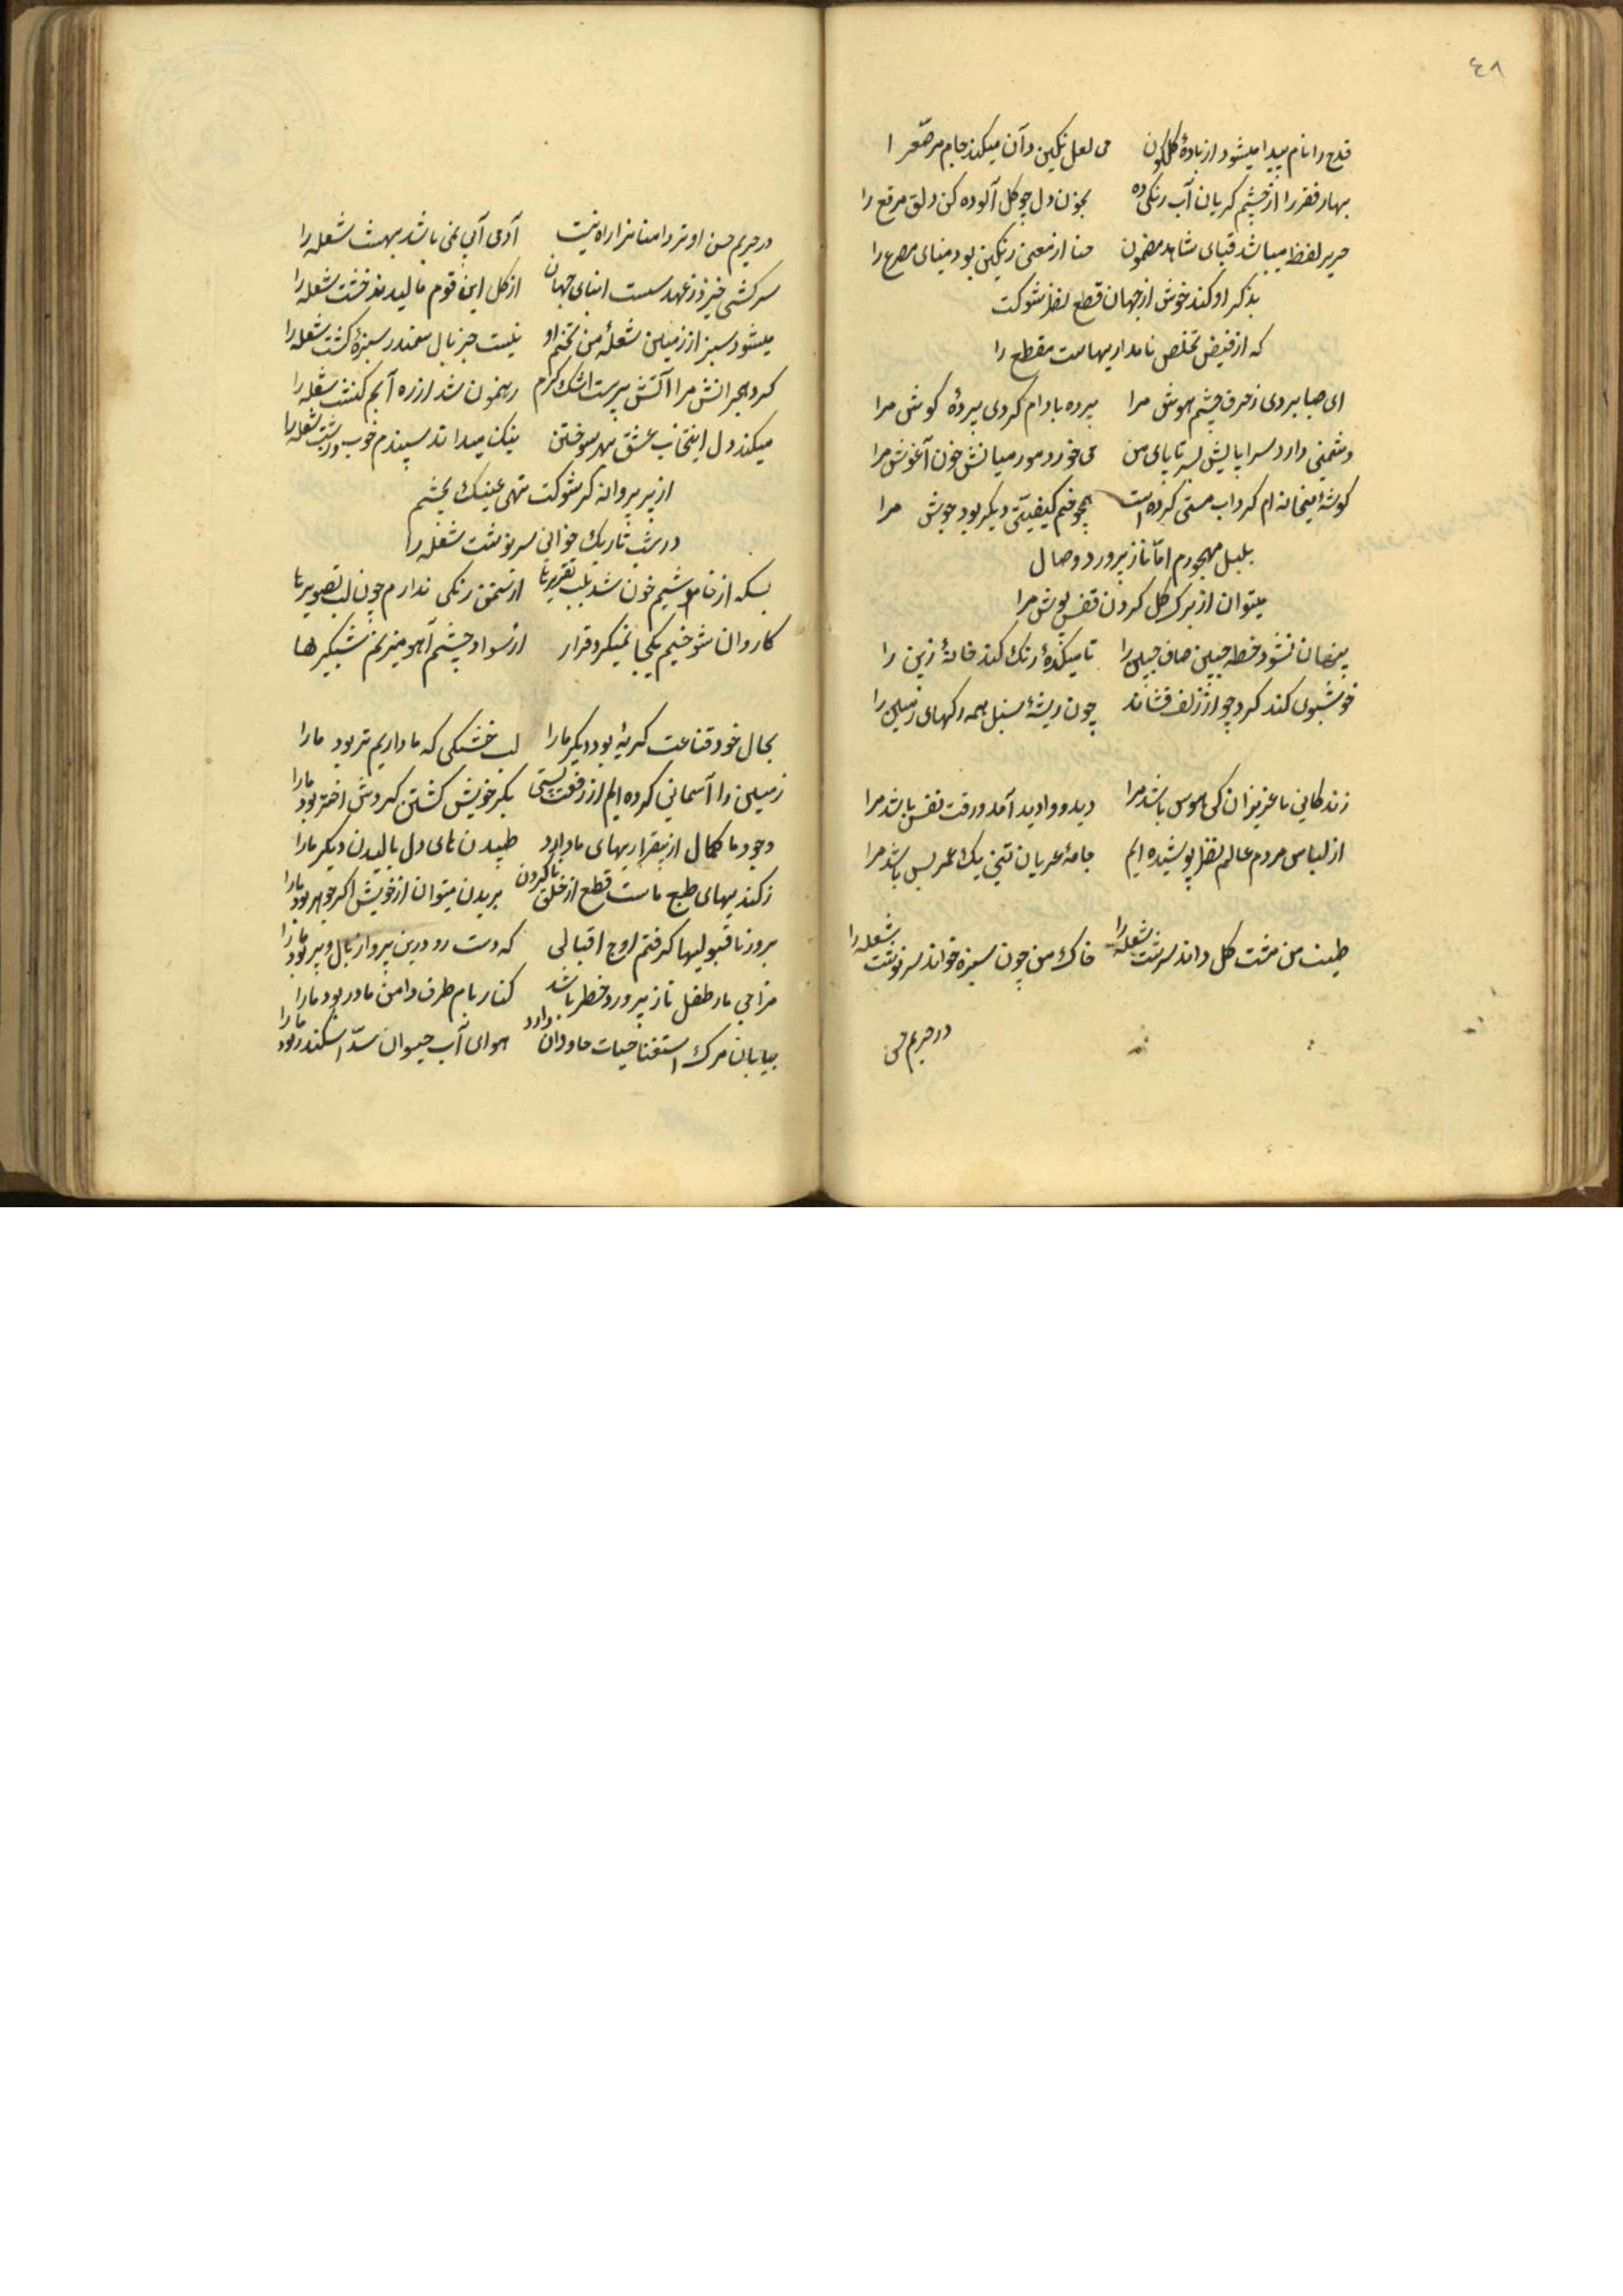 ٤٨
قدح را نام پیدا میشود از بادهٔ کلکون می لعل نکین دان میکند جام مرصّع را
بهار فقر را از چشم کریان آب رنکی ده بخون دل چو کل آلوده کن دلق مرقع را
حریر لفظ میباشد قبای شاهد مضمون حنا از معنی رنکین بود مینای مصرع را
بذکر او کند خوش از جهان قطع نظر شوکت
که از فیض تخلص نامداریهاست مقطع را
ای صبا بردی ز حرف چشم هوش مرا پرده بادام کردی پردهٔ کوش مرا
دشمنی دارد سراپایش بسر تا پای من می خورد مور میانش خون آغوش مرا
کوشهٔ میخانه ام کرداب مستی کرده است همچو خم کیفیتی دیکر بود جوش مرا
بلبل مهجورم امّا ناز پرورد وصال
میتوان از برک کل کردن قفس پوش مرا
پنهان نشود خط جبین صاف جبین را تا میکدهٔ رنک کند خانهٔ زین را
خوشبوی کند کرد چو از زلف فشاند چون ریشهٔ سنبل همه رکهای زمین را
زندکانی با عزیزان کی هوس باشد مرا دید و وادید آمد و رفت نفس باشد مرا
از لباس مردم عالم نظر پوشیده ایم جامهٔ عریان تنی یک عمر بس باشد مرا
طینت من مشت کل داند سرشت شعله را خاک من چون سبزه خواند سرنوشت شعله را
در حریم حس
در حریم حسن او تر دامنانرا راه نیست آدمی آبی نمی باشد بهشت شعله را
سرکشی خیزد ز عهد سست ابنای جهان از کل این قوم مالیدند خشت شعله را
میشود سبز از زمین شعلهٔ من تخم او نیست جز بال سمندر سبزهٔ کشت شعله را
کرد هجرانش مرا آتش پرست اشک کرم رهنمون شد از ره آبم کنشت شعله را
میکند دل انتخاب عشق بهر سوختن نیک میداند سپندم خوب و زشت شعله را
از پر پروانه کر شوکت نهی عینک بچشم
در شب تاریک خوانی سرنوشت شعله را
بسکه از خاموشیم خون شد بلب تقریرها از سخن رنکی ندارم چون لب تصویرها
کاروان شوخیم یکجا نمیکرد قرار از سواد چشم آهو میزنم شبکیرها
بحال خود قناعت کریهٔ بود دیکر ما را لب خشکی که ما داریم تر بود ما را
زمین را آسمانی کرده ایم از رفعت پستی بکرد خویش کشتن کردش اختر بود ما را
وجود ما کمال از بیقراریهای ما دارد طپیدن های دل بالیدن دیکر ما را
ز کندیهای طبع ماست قطع از خلق ناکردن بریدن میتوان از خویش اکر جوهر بود ما را
بروز ناقبولیها کرفتم اوج اقبالی که دست رد درین پرواز بال و پر بود ما را
مزاجی ما ر طفل ناز پرورد خطر باشد کنار بام طرف دامن مادر بود ما را
بیابان مرک استغنا حیات جاودان دارد هوای آب حیوان سدّ اسکندر بود ما را